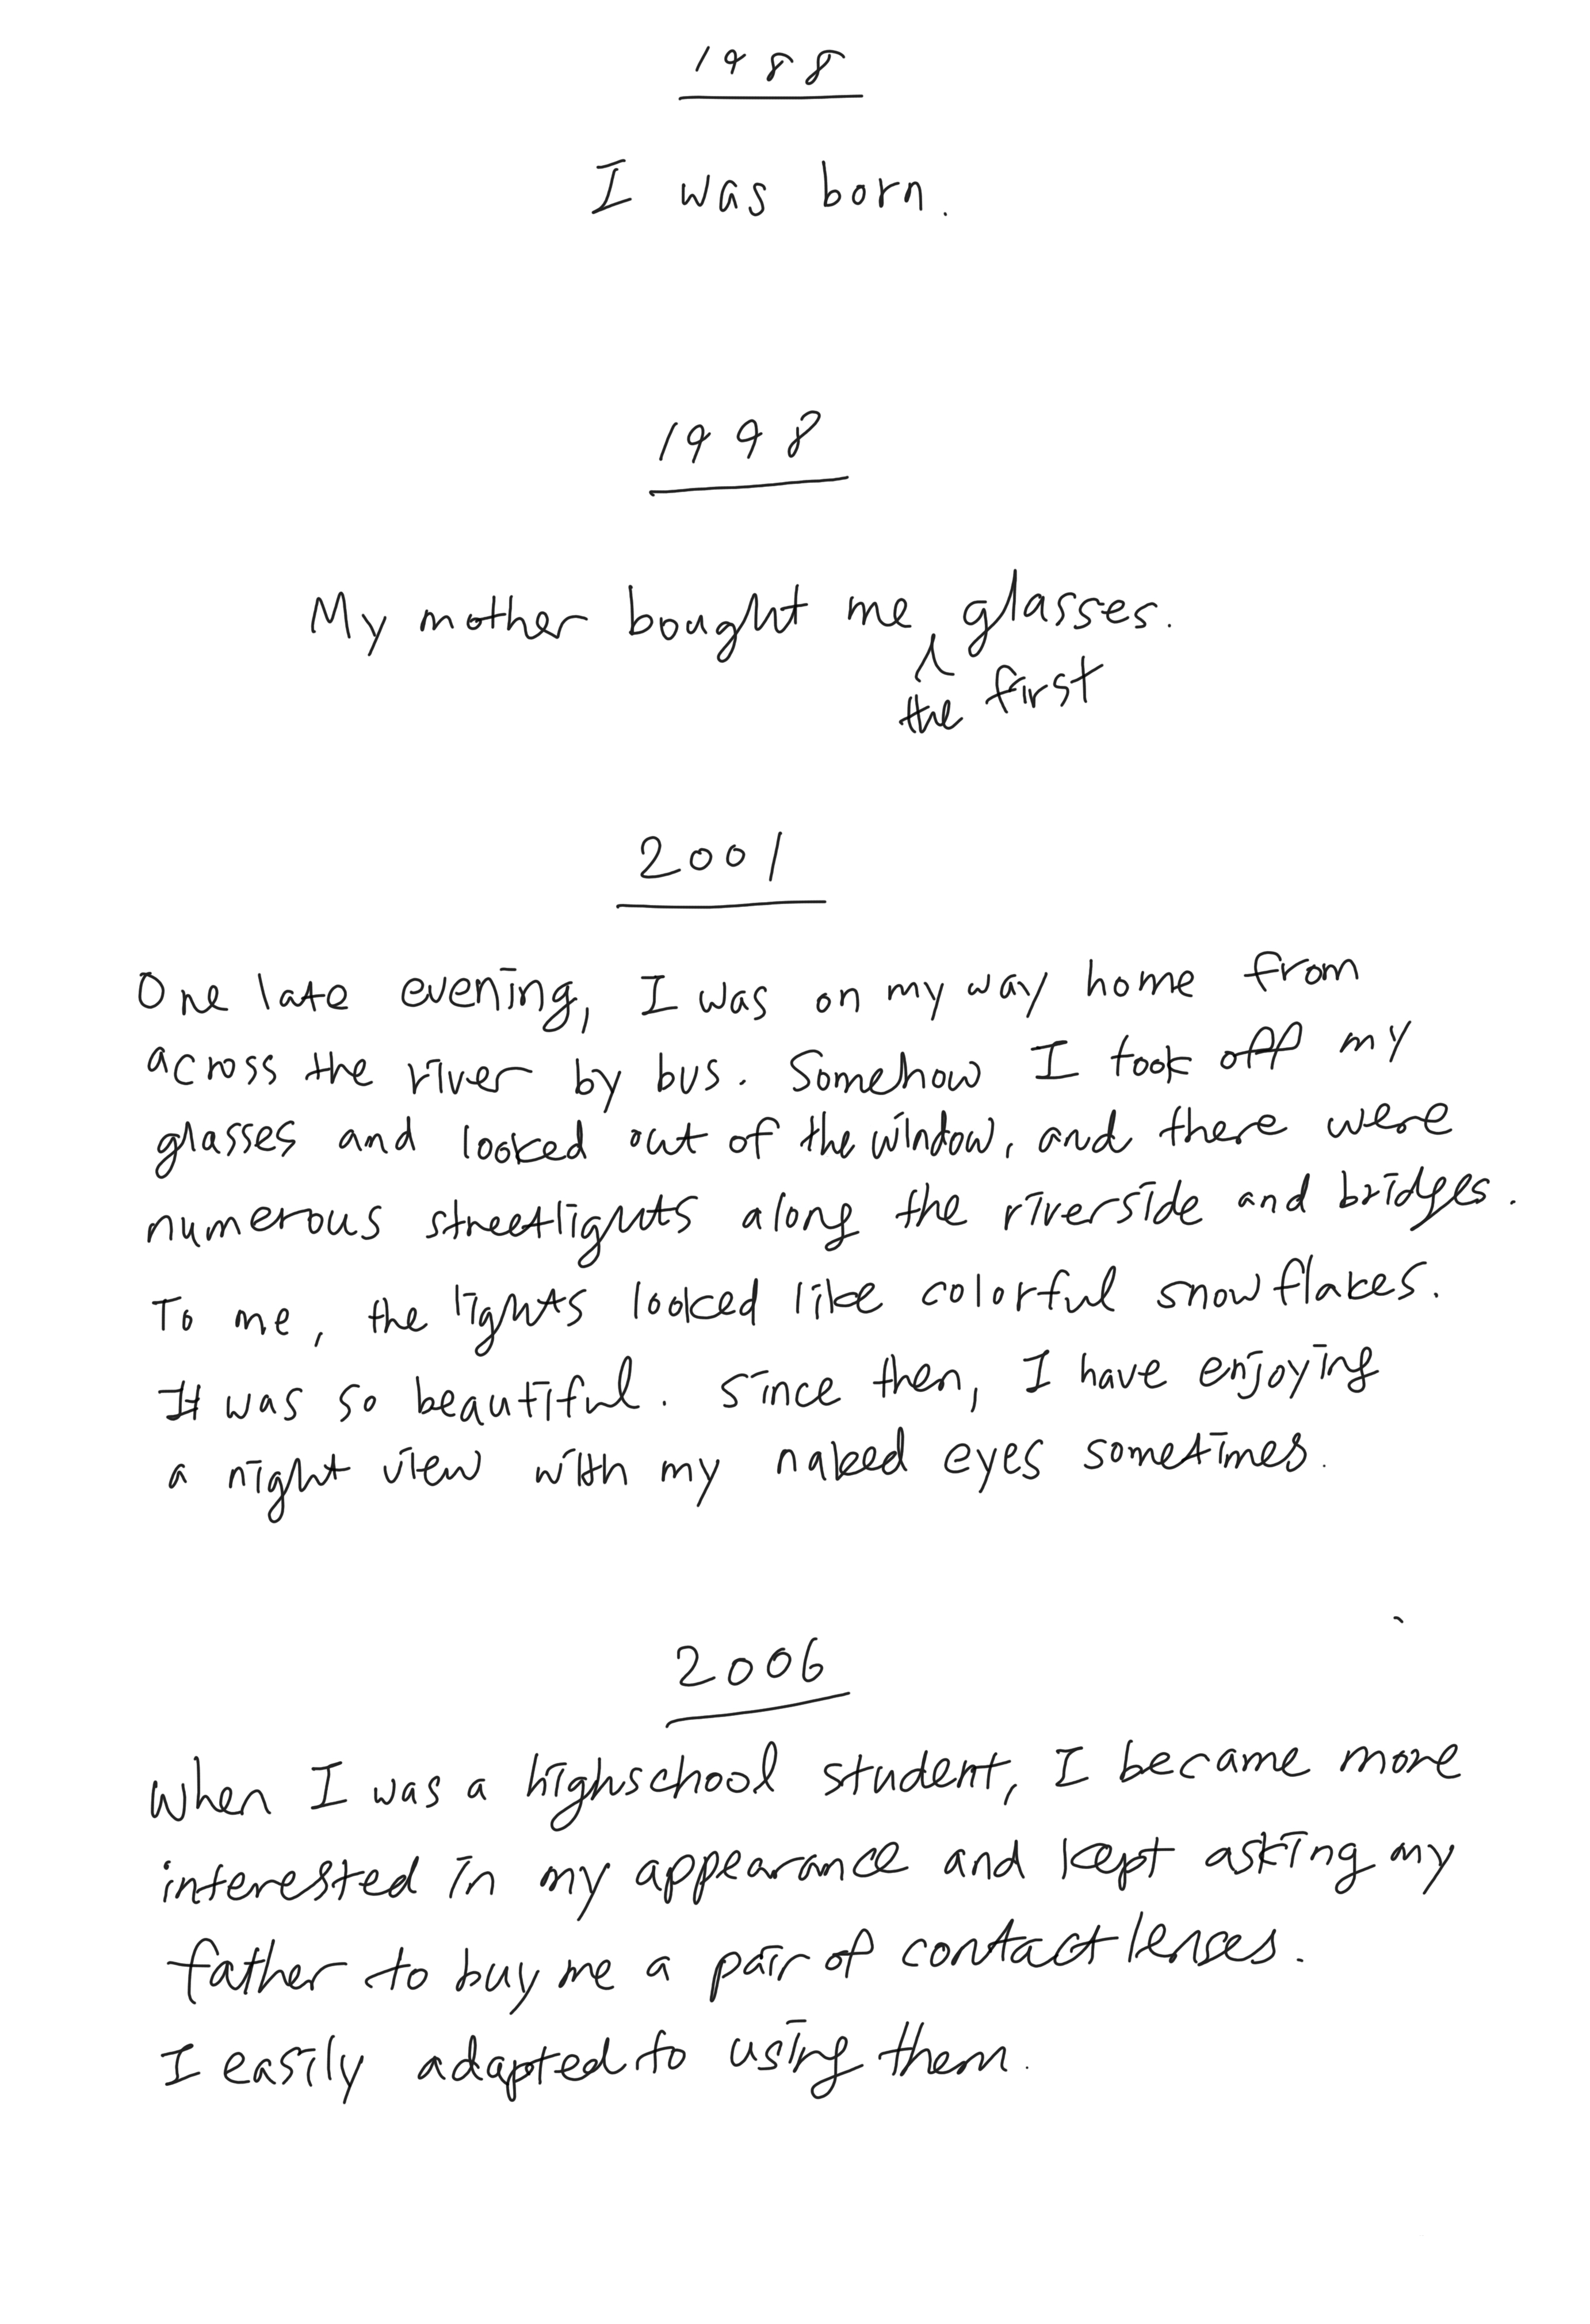 1988
I was born.
1998
My mother bought me the first glasses.
2001
One late evening, I was on my way home from
across the river by bus. Somehow I took off my
glasses and looked out of the window, and there were
numerous streetlights along the riverside and bridges.
To me, the lights looked like colorful snowflakes.
It was so beautiful. Since then, I have enjoying
a night view with my naked eyes sometimes.
2006
When I was a highschool student, I became more
interested in my appearance and kept asking my
father to buy me a pair of contact lenses.
I easily adapted to using them.